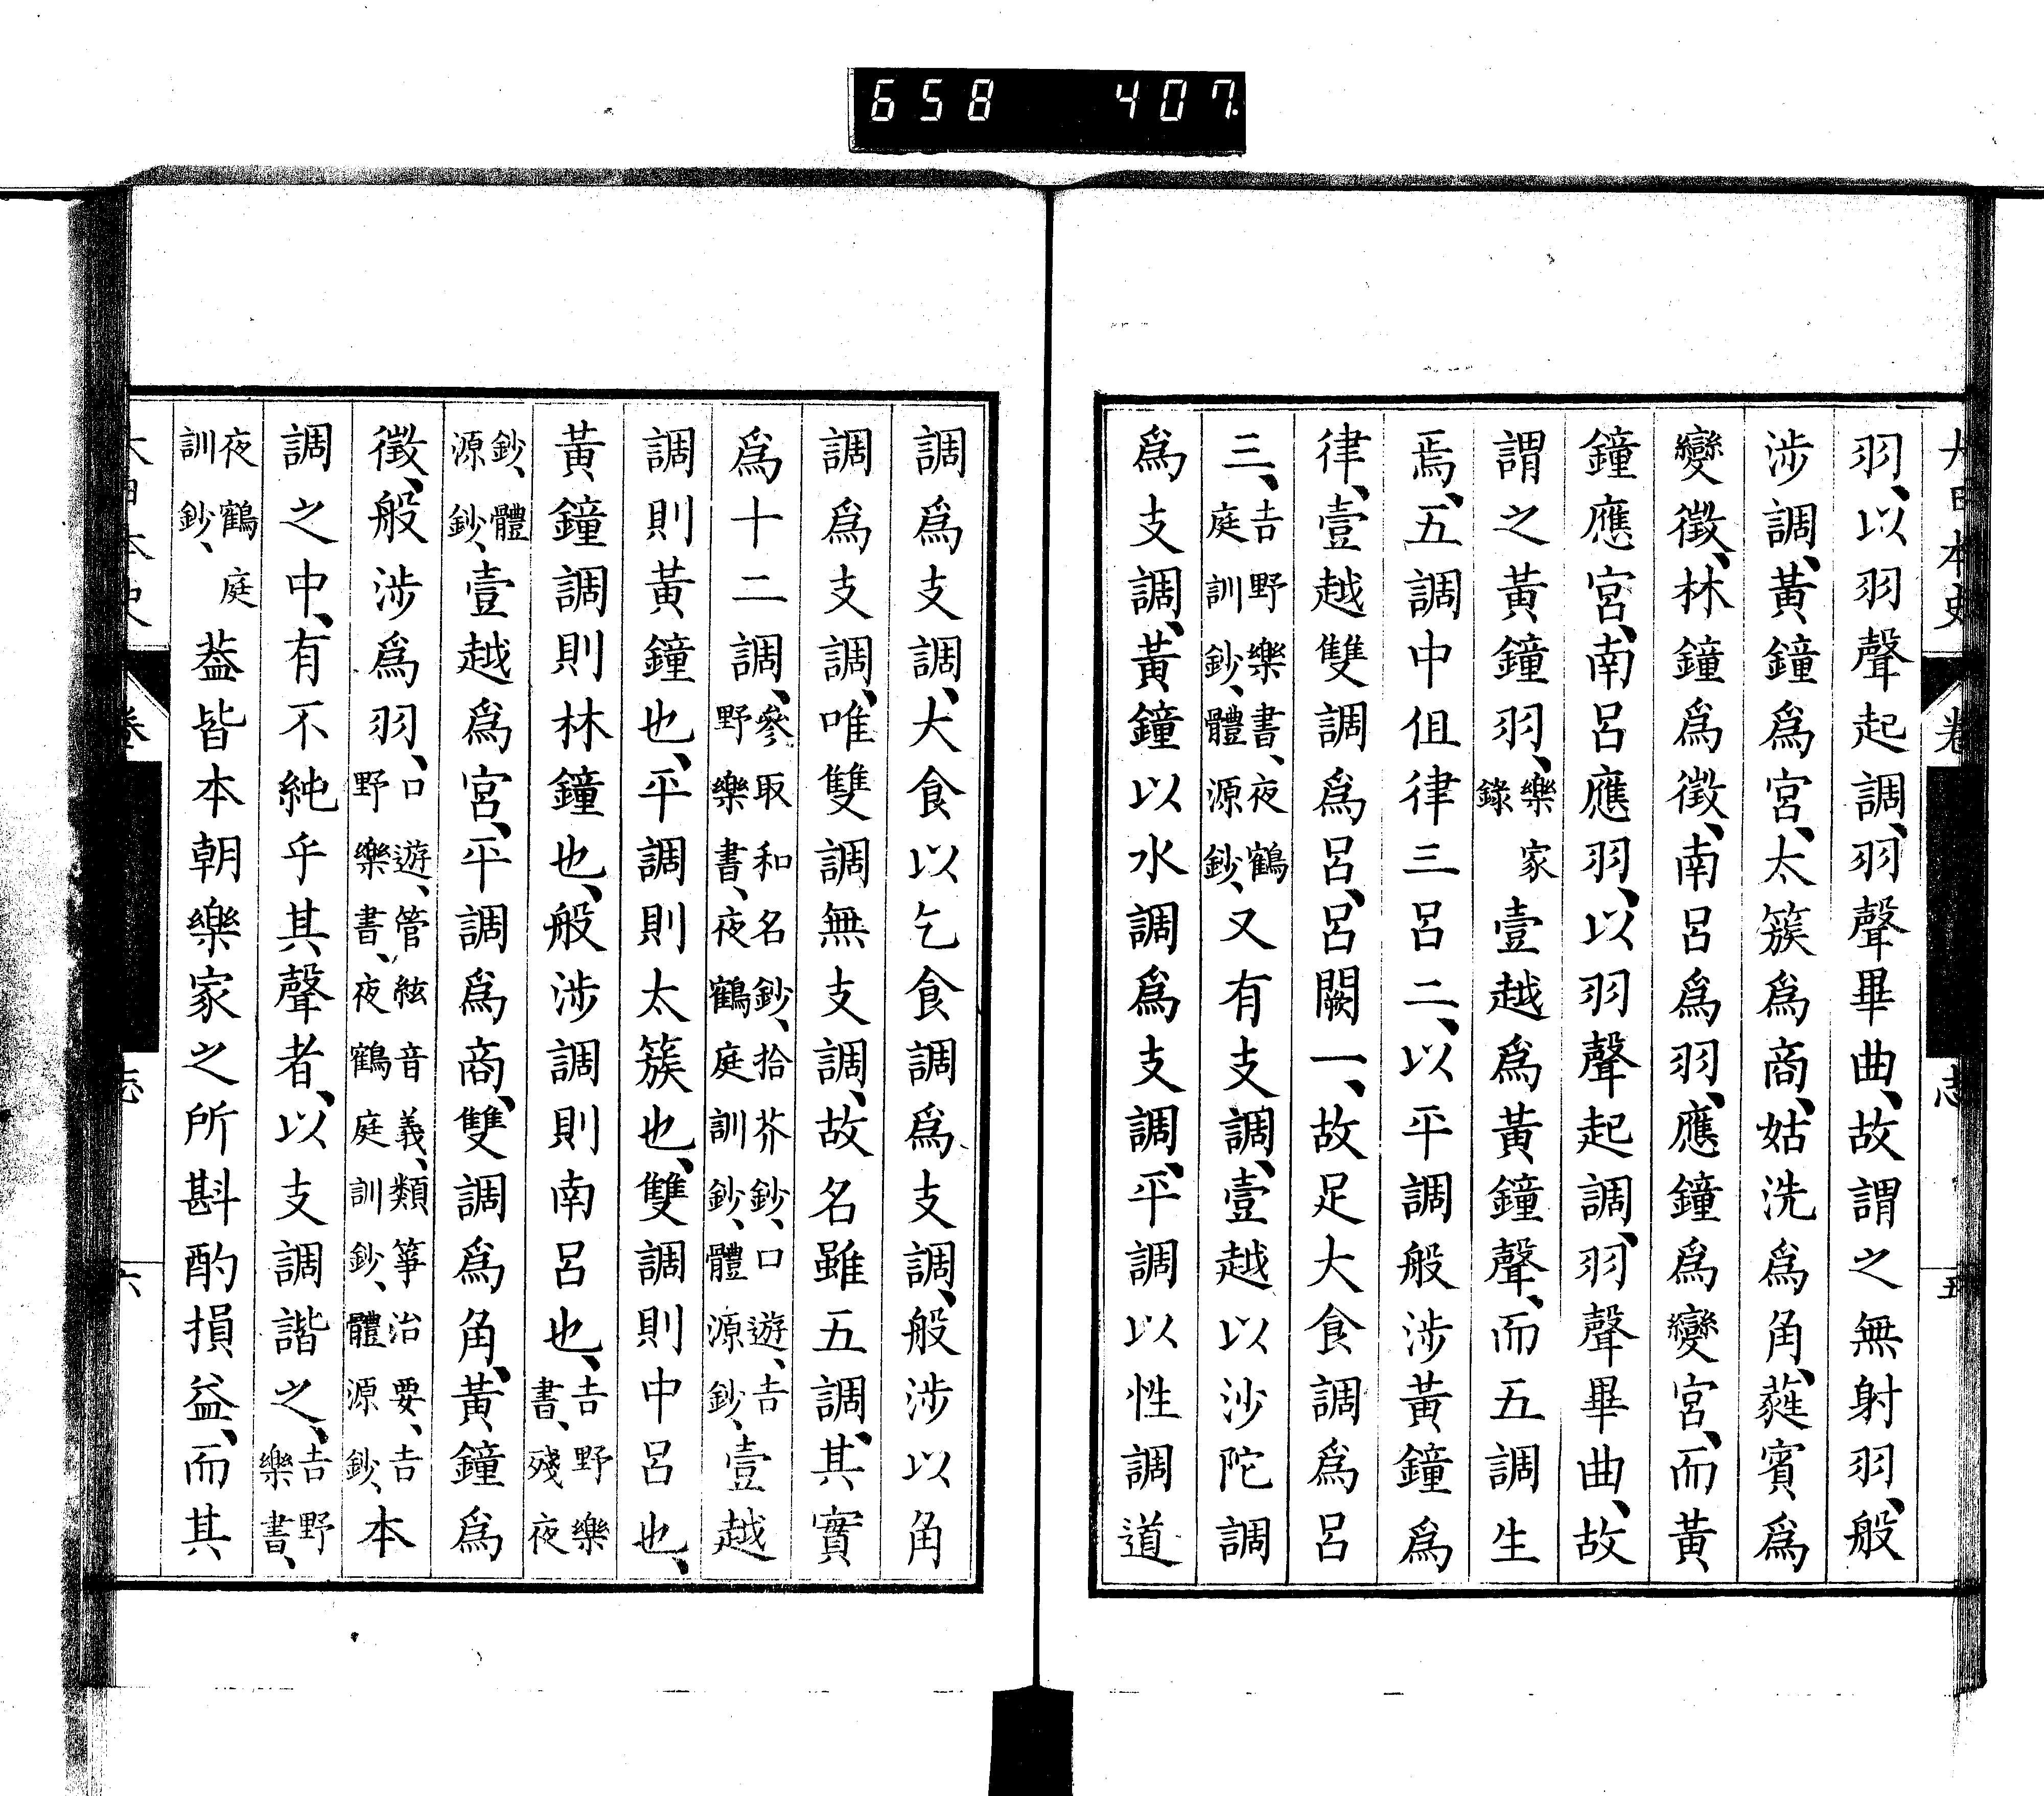 658 407.
大日本史 卷 志 五
羽、以羽聲起調、羽聲畢曲、故謂之無射羽、般
涉調、黃鐘爲宮、太簇爲商、姑洗爲角、蕤賓爲
變徵、林鐘爲徵、南呂爲羽、應鐘爲變宮、而黃
鐘應宮、南呂應羽、以羽聲起調、羽聲畢曲、故
謂之黃鐘羽、樂家錄 壹越爲黃鐘聲、而五調生
焉、五調中但律三呂二、以平調般涉黃鐘爲
律、壹越雙調爲呂、呂闕一、故足大食調爲呂
三、吉野樂書、夜鶴庭訓鈔、體源鈔、又有支調、壹越以沙陀調
爲支調、黃鐘以水調爲支調、平調以性調道
調爲支調、大食以乞食調爲支調、般涉以角
調爲支調、唯雙調無支調、故名雖五調、其實
爲十二調、參取和名鈔、拾芥鈔、口遊、吉野樂書、夜鶴庭訓鈔、體源鈔、壹越
調則黃鐘也、平調則太簇也、雙調則中呂也、
黃鐘調則林鐘也、般涉調則南呂也、吉野樂書、殘夜
鈔、體源鈔、壹越爲宮、平調爲商、雙調爲角、黃鐘爲
徵、般涉爲羽、口遊、管絃音義、類箏治要、吉野樂書、夜鶴庭訓鈔、體源鈔、本
調之中、有不純乎其聲者、以支調諧之、吉野樂書、
夜鶴庭訓鈔、蓋皆本朝樂家之所斟酌損益、而其
大日本史 卷 志 六